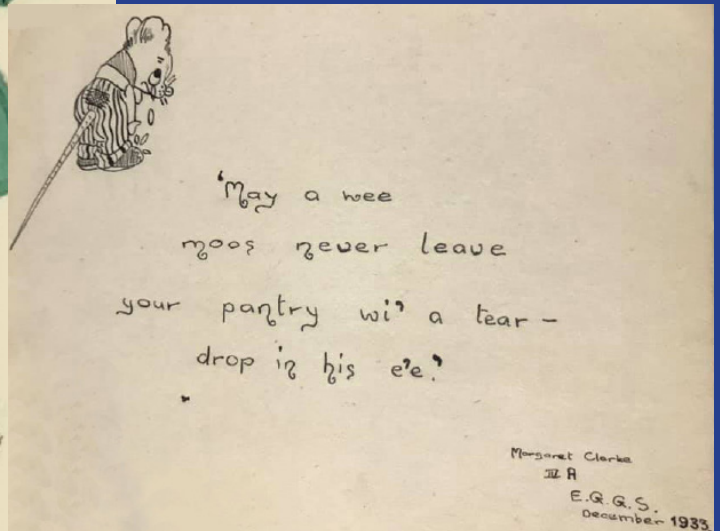 'May a wee
moos never leave
your pantry wi' a tear-
drop in his e'e.'
Margaret Clarke
IV A
E.G.G.S.
December 1933